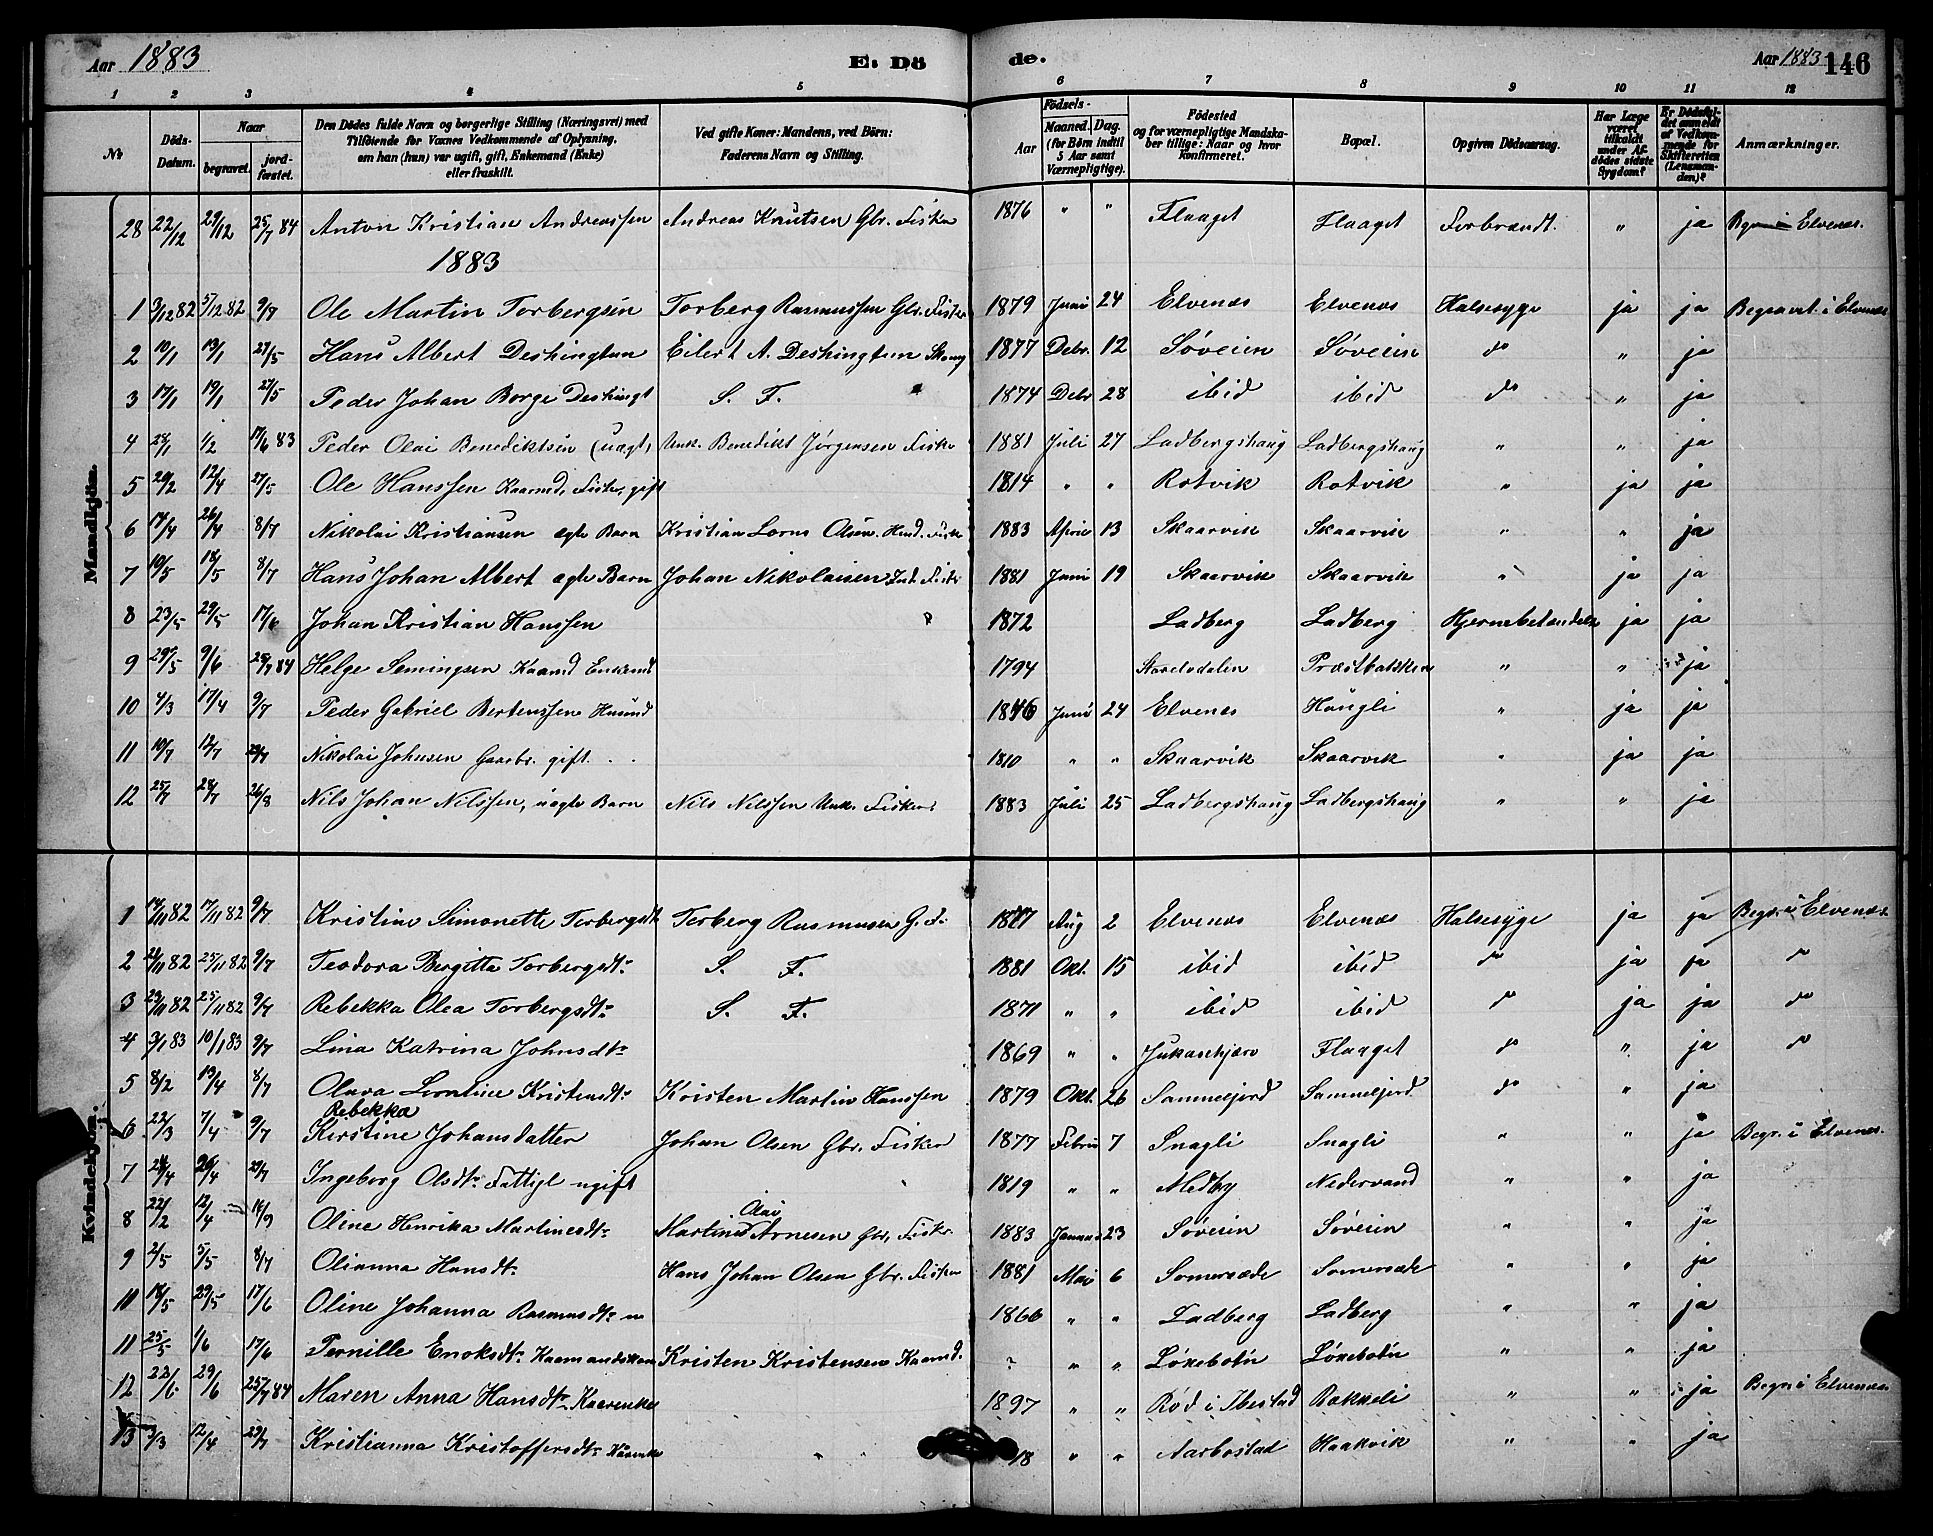 Aar 1883 E. Dö de. Aar 1883 146
1 2 3 4 5 6 7 8 9 10 11 12
No Döds-Datum. Naar begravet. jord-fæstet. Den Dödes fulde Navn og borgerlige Stilling (Næringsvei) med Tilföiende for Voxnes Vedkommende af Oplysning, om han (hun) var ugift, gift, Enkemand (Enke) eller fraskilt. Ved gifte Koner: Mandens, ved Börn: Faderens Navn og Stilling. Födsels- Aar Maaned. Dag. (for Börn indtil 5 Aar samt Værnepligtige). Födested og for værnepligtige Mandskaber tillige: Naar og hvor konfirmeret. Bopæl. Opgiven Dödsaarsag. Har Læge været tilkaldt under Afdödes sidste Sygdom? Er Dödsfaldet anmeldt af Vedkommende for Skifteretten (Lensmanden)? Anmærkninger.
Mandkjön.
28 22/12 29/12 25/7 84 Anton Kristian Andreassen Andreas Knutsen Gbr. Fisker 1876 " " Flaaget Flaaget Forbrændt. " ja Elvenes.
1883
1 3/12 82 5/12 82 9/7 Ole Martin Torbergsen Torberg Rasmussen Gbr. Fisker 1879 Juni 24 Elvenes Elvenes Halsesyge ja ja Begravet i Elvenes
2 10/1 13/1 27/5 Hans Albert Deshington Eilert A. Deshington 1877 Debr. 12 Søveien Søveien do " ja
3 17/1 19/1 27/5 Peder Johan Borge Deshingt S. F. 1874 Debr 28 ibid ibid do " ja
4 28/1 1/2 17/6 83 Peder Olai Benediktsen (uægt. Unk. Benedikt Jørgensen Fisker 1881 Juli 27 Ladbergshaug Ladbergshaug " " ja
5 20/2 12/4 27/5 Ole Hanssen Kaarmd, Fisker, gift 1814 " " Rotvik Rotvik " ja ja
6 17/4 26/4 8/7 Nikolai Kristiansen ægte Barn Kristian Lorns Olsen. 1883 April 13 Skaarvik Skaarvik " " ja
7 10/5 18/5 8/7 Hans Johan Albert ægte Barn Johan Nikolaisen Ind. Fisker 1881 Juni 19 Skaarvik Skaarvik " ja ja
8 23/5 29/5 17/6 Johan Kristian Hanssen 1872 Ladberg Ladberg Hjernebetændelse ja ja
9 29/5 9/6 25/7 84 Helge Semingsen Kaarmd Enkemd 1794 Præstbakken " " ja
10 4/3 17/4 9/7 Peder Gabriel Bertenssen Husmd 1846 Juni 24 Elvenes Haugli " ja ja
11 10/7 12/7 29/7 Nikolai Johnsen Gaardbr. gift. 1810 " " Skaarvik Skaarvik " ja ja
12 25/7 28/7 26/8 Nils Johan Nilssen, uægte Barn Nils Nilssen Unk. Fisker. 1883 Juli 25 Ladbergshaug Ladbergshaug " " ja
Kvindekjön.
1 14/11 82 17/11 82 9/7 Kristine Simonette Torbergsdt. Torberg Rasmusen G. Fi. 1877 Aug 2 Elvenes Elvenes Halsesyge ja ja Begr. i Elvenes
2 21/11 82 25/11 82 9/7 Teodora Bergitte Torbergsdt. S. F. 1881 Okt. 15 ibid ibid do ja ja do
3 23/11 82 25/11 82 9/7 Rebekka Olea Torbergsdt. S. F. 1871 " " ibid ibid do ja ja do
4 3/1 83 10/1 83 9/7 Lina Katrina Johnsdt. 1869 " " Jukaskjærv Flaaget do " ja do
5 8/2 13/4 8/7 Olava Lorntine Kristensdt. Kristen Martin Hanssen 1879 Okt. 26 Sammeljord Sammeljord do " ja
Rebekka
6 22/3 7/4 9/7 Kirstine Johansdatter Johan Olsen Gbr. Fisker 1877 Febru 7 Snagli Snagli " " ja Begr. i Elvenes.
7 21/4 26/4 29/7 Ingeborg Olsdt. Fattigl ugift 1819 " " Medby Nedervand " " ja
8 22/2 12/4 16/9 Oline Henrika Martinesdt. Martines Olai Arnesen Gbr. Fisker 1883 Januar 23 Søveien Søveien " " ja
9 2/5 5/5 8/7 Olianna Hansdt. Hans Johan Olsen Gbr. Fisker 1881 Mai 6 Somersæde Somersæde " " ja
10 18/5 29/5 17/6 Oline Johanna Rasmusdt. 1866 " " Ladberg Ladberg " " ja
11 25/5 1/6 17/6 Pernille Enoksdt. Kaarmandskone Kristen Kristensen Kaarmd. ? " " Løksebotn Løksebotn " " ja
12 22/6 29/6 25/7 84 Maren Anna Hansdt. Kaarenke 1897 " " Rød i Ibestad Bakkeli " " ja Begr. i Elvenes
13 3/3 12/4 29/7 Kristianna Kristoffersdt. Kaarenke " " 18 " " Aarbostad Haakvik " " ja